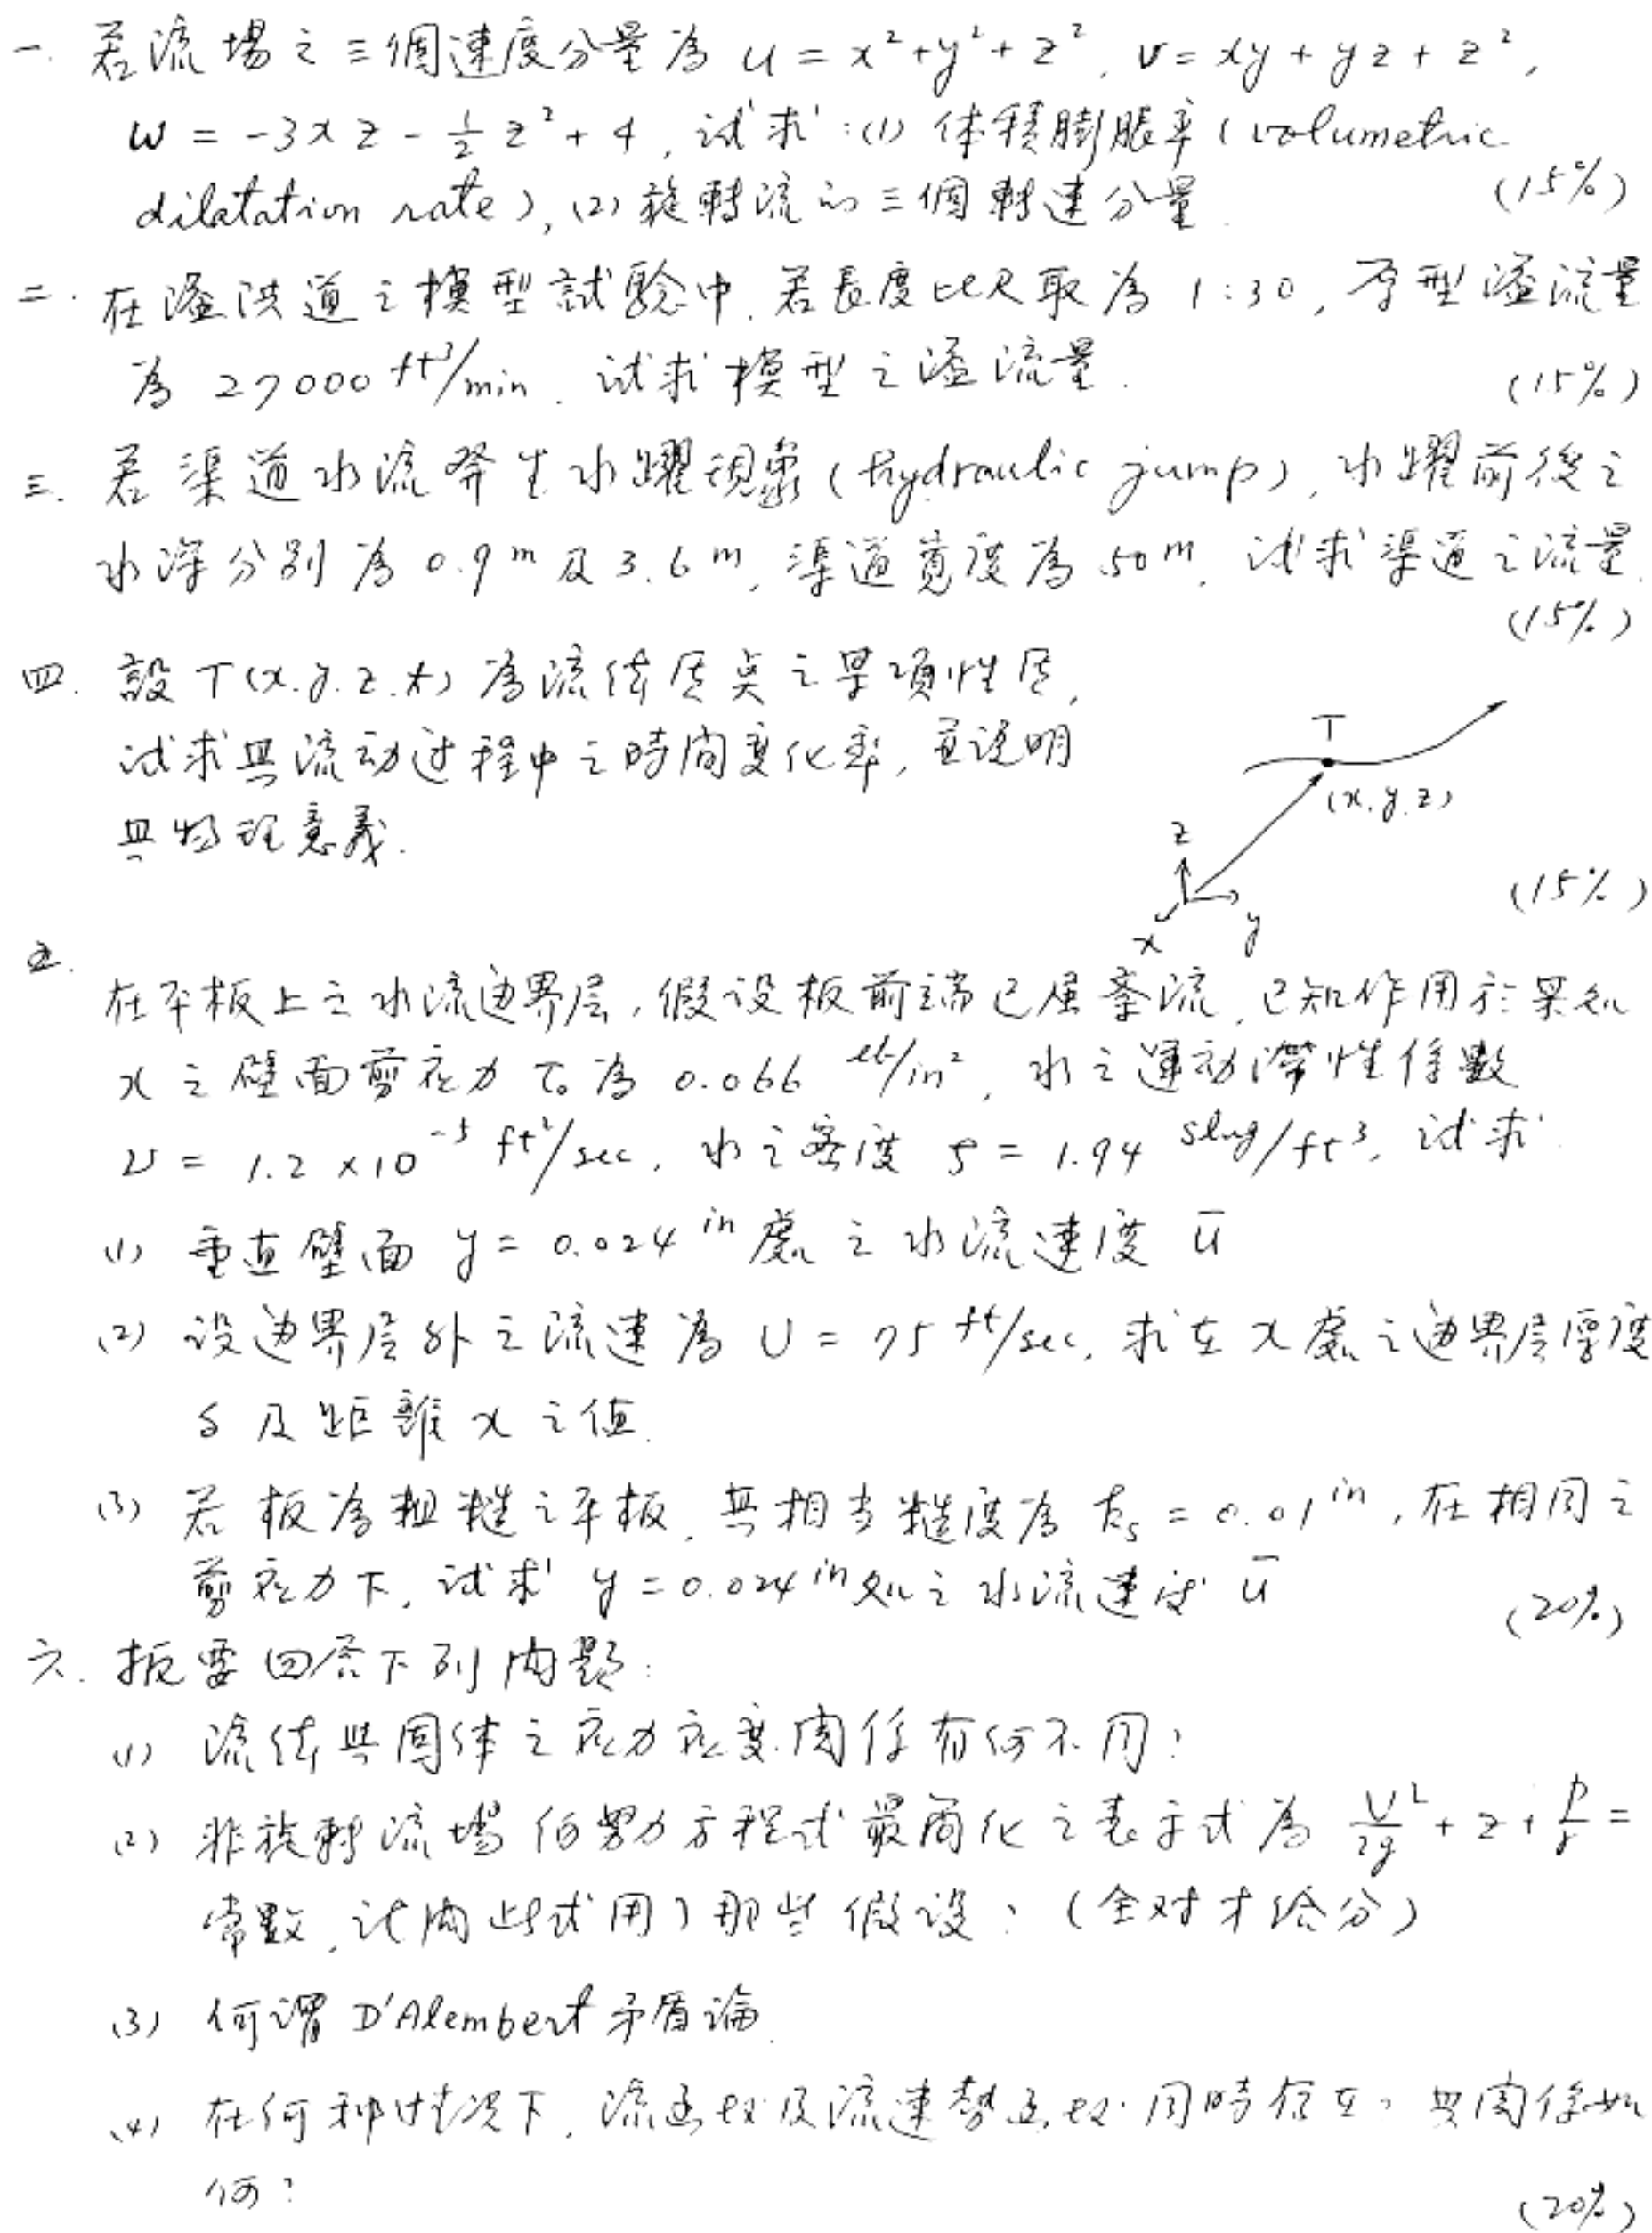 一. 若流場之三個速度分量為 u = x² + y² + z², v = xy + yz + z²,
w = -3xz - ½z² + 4, 試求:(1) 体積膨脹率 (volumetric
dilatation rate), (2) 旋轉流的三個轉速分量. (15%)
二. 在溢洪道之模型試驗中, 若長度比尺取為 1:30, 原型溢流量
為 27000 ft³/min. 試求模型之溢流量. (15%)
三. 若渠道水流發生水躍現象 (hydraulic jump), 水躍前後之
水深分別為 0.9 m 及 3.6 m, 渠道寬度為 50 m. 試求渠道之流量.
(15%)
四. 設 T(x.y.z.t) 為流体質點之某項性質,
試求其流动过程中之時間变化率, 並说明
其物理意義.
T
(x.y.z)
z
x y
(15%)
五.
在平板上之水流边界层, 假设板前端已屬紊流, 已知作用於某处
x 之壁面剪应力 τ₀ 為 0.066 lb/in², 水之運动滯性係數
ν = 1.2 × 10⁻⁵ ft²/sec, 水之密度 ρ = 1.94 slug/ft³, 试求
(1) 垂直壁面 y = 0.024 in 處之水流速度 ū
(2) 设边界层外之流速為 U = 75 ft/sec, 求在 x 處之边界层厚度
δ 及距離 x 之值.
(3) 若板為粗糙之平板, 其相当糙度為 ks = 0.01 in, 在相同之
剪应力下, 试求 y = 0.024 in 处之水流速度 ū (20%)
六. 扼要回答下列问題:
(1) 流体與固体之应力应变关係有何不同?
(2) 非旋轉流場伯努力方程式最简化之表示式為 V²/2g + z + p/γ =
常數, 试问此式用了那些假设? (全对才给分)
(3) 何谓 D'Alembert 矛盾論.
(4) 在何种情况下, 流函数及流速势函数同時存在, 其関係如
何? (20%)